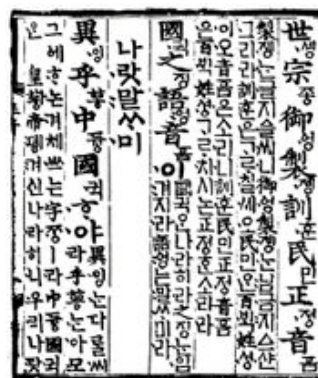 世솅宗종御엉製졩訓훈民민正졍音음
製졩는글지ᅀᅳᆯ씨니御엉製졩는님금지ᅀᅳ샨
그리라訓훈은ᄀᆞᄅᆞ칠씨오民민ᄋᆞᆫ百ᄇᆡᆨ姓셩
이오音음은소리니訓훈民민正졍音음
은百ᄇᆡᆨ姓셩ᄀᆞᄅᆞ치시논正졍ᄒᆞᆫ소리라
國귁之징語엉音음이
國귁ᄋᆞᆫ나라히라之징ᄂᆞᆫ입
겨지라語엉는말ᄊᆞ미라
나랏말ᄊᆞ미
異잉乎ᅘᅩᆼ中듕國귁ᄒᆞ야
異잉ᄂᆞᆫ다ᄅᆞᆯ씨
라乎ᅘᅩᆼᄂᆞᆫ아모
그ᅌᅦᄒᆞ논겨체ᄡᅳ는字ᄍᆞᆼㅣ라中듕國귁
ᄋᆞᆫ皇ᅘᅪᆼ帝뎽겨신나라히니우리나랏